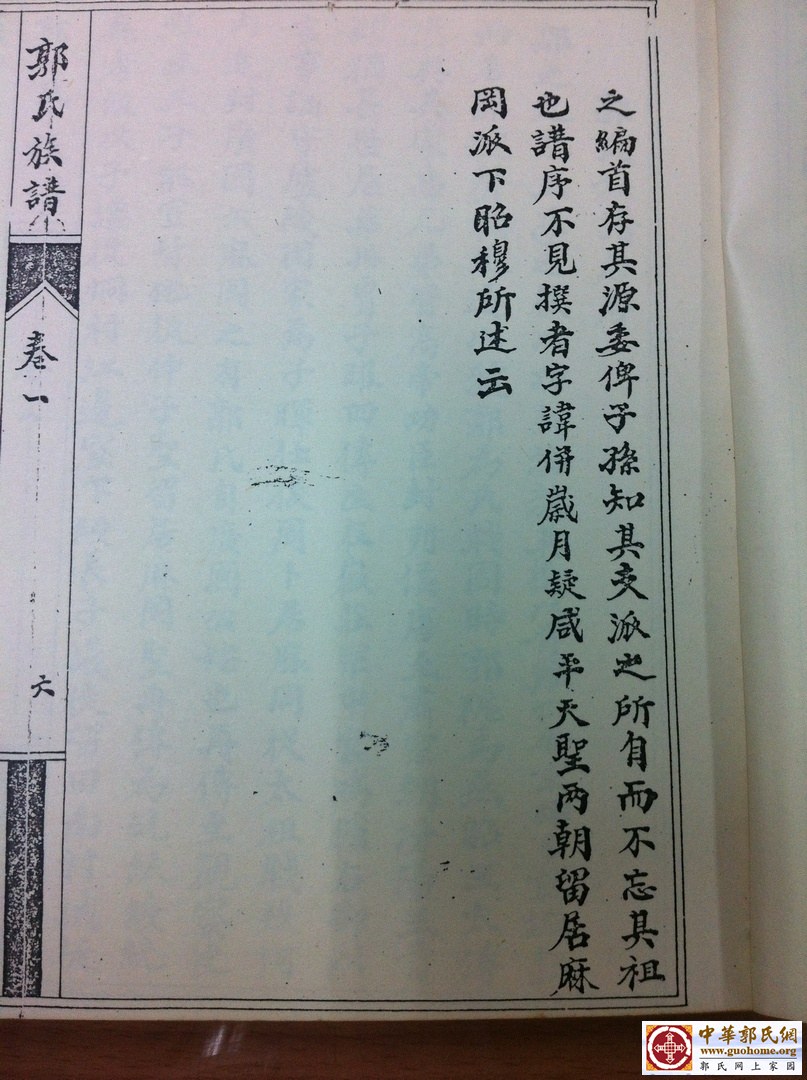 之編首存其源委俾子孫知其支派之所自而不忘其祖
也譜序不見撰者字諱併歲月疑咸平天聖两朝留居麻
岡派下昭穆所述云
郭氏族譜
卷一
六
中華郭氏網
www.guohome.org
郭氏网上家园